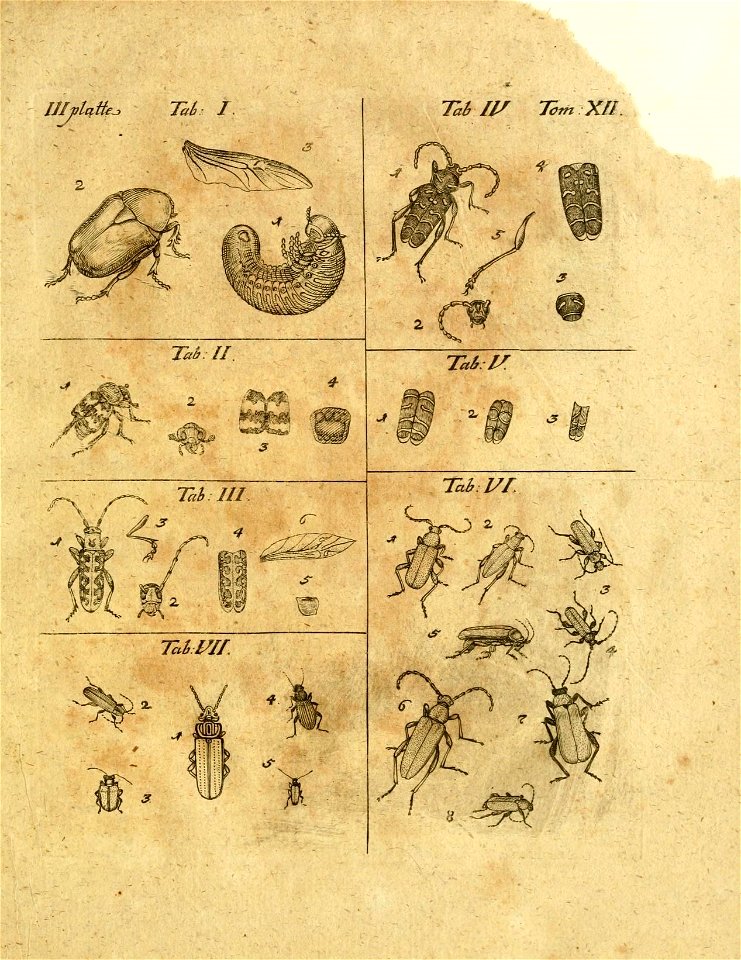 III platte Tab: I.
3
2
1
Tab: II.
1
2
3
4
Tab: III
1
3
2
4
6
5
Tab: VII.
2
1
4
3
5
Tab IV Tom: XII.
1
4
5
3
2
Tab: V.
1
2
3
Tab: VI.
1
2
3
5
4
6
7
8